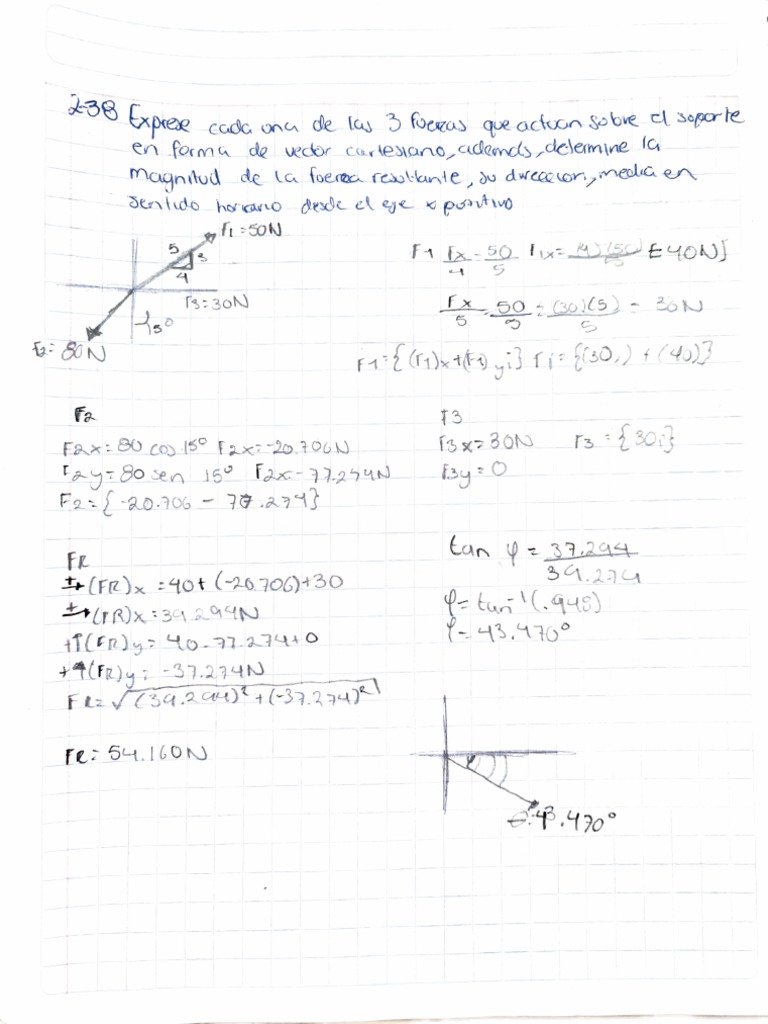 2-38 Exprese cada una de las 3 fuerzas que actuan sobre el soporte
en forma de vector cartesiano, además, determine la
magnitud de la fuerza resultante, su direccion, media en
sentido horario desde el eje x positivo
F1=50N
5
3
4
F3=30N
15°
F2=80N
F1 Fx/4 = 50/5 F1x= (4)(50)/5 = 40N
Fx/5 = 50/5 = (30)(5)/5 = 30N
F1={(F1)x+(F1)yi} Fi={(30,)+(40)}
F2
F2x=80 cos 15° F2x=-20.706N
F2y=80 sen 15° F2x-77.274N
F2={-20.706 - 77.274}
F3
F3x=30N F3={30i}
F3y=0
FR
(FR)x=40+(-20.706)+30
(FR)x=39.294N
+↑(FR)y=40-77.274+0
+↑(FR)y=-37.274N
FR=√(39.294)²+(-37.274)²
FR=54.160N
tan φ = 37.294/39.274
φ=tan⁻¹(.948)
φ=43.470°
φ
43.470°